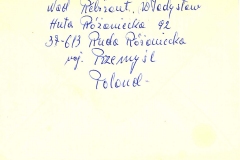 Rebizant, Władysław
Huta Różaniecka 92
37-613 Ruda Różaniecka
woj. Przemyśl
Poland-